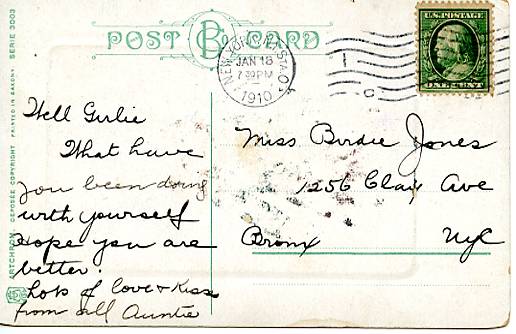 SERIE 3003
PRINTED IN BAXONY
ARTCHROM. DEPOSEE COPYRIGHT
POST B CARD
NEW YORK, N.Y. STA. O
JAN 18
7 30 PM
1910
U.S. POSTAGE
ONE CENT
Well Girlie
What have
you been doing
with yourself
Hope you are
better.
Lots of love & Kiss
from all Auntie
Miss Birdie Jones
1256 Clay Ave
Bronx NYC